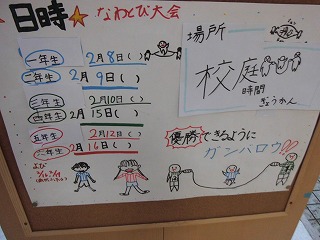 日時☆ なわとび大会
一年生 2月8日( )
二年生 2月9日( )
三年生 2月10日( )
四年生 2月15日( )
五年生 2月12日( )
六年生 2月16日( )
よび
場所
校庭
時間
ぎょうかん
優勝できるように
ガンバロウ!!